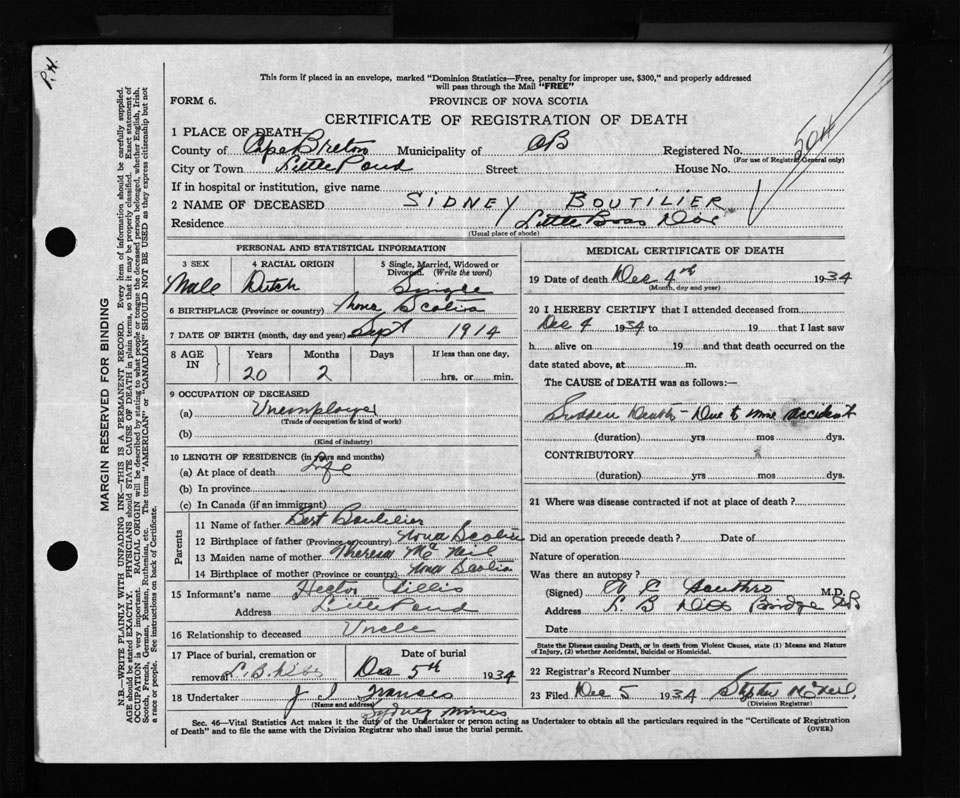 P.H.
This form if placed in an envelope, marked "Dominion Statistics—Free, penalty for improper use, $300," and properly addressed
will pass through the Mail "FREE"
FORM 6.
PROVINCE OF NOVA SCOTIA
CERTIFICATE OF REGISTRATION OF DEATH
504
1 PLACE OF DEATH—
County of Cape Breton Municipality of CB Registered No.
(For use of Registrar General only)
City or Town Little Pond Street House No.
If in hospital or institution, give name
2 NAME OF DECEASED SIDNEY BOUTILIER
Residence Little Bras Dor
(Usual place of abode)
PERSONAL AND STATISTICAL INFORMATION
3 SEX 4 RACIAL ORIGIN 5 Single, Married, Widowed or Divorced. (Write the word)
Male Dutch Single
6 BIRTHPLACE (Province or country) Nova Scotia
7 DATE OF BIRTH (month, day and year) Sept 1914
8 AGE IN Years Months Days If less than one day,
20 2 hrs. or min.
9 OCCUPATION OF DECEASED
(a) Unemployed
(Trade of occupation or kind of work)
(b)
(Kind of industry)
10 LENGTH OF RESIDENCE (in years and months)
(a) At place of death Life
(b) In province
(c) In Canada (if an immigrant)
Parents
11 Name of father Bert Boutilier
12 Birthplace of father (Province or country) Nova Scotia
13 Maiden name of mother Theresa McNeil
14 Birthplace of mother (Province or country) Nova Scotia
15 Informant's name Hector Lillis
Address Little Pond
16 Relationship to deceased Uncle
17 Place of burial, cremation or removal L. B. D'Or Date of burial Dec 5th 1934
18 Undertaker J J Frances
(Name and address)
Sydney Mines
MEDICAL CERTIFICATE OF DEATH
19 Date of death Dec 4th 1934
(Month, day and year)
20 I HEREBY CERTIFY that I attended deceased from
Dec 4 1934 to 19 that I last saw
h alive on 19 and that death occurred on the
date stated above, at m.
The CAUSE of DEATH was as follows:—
Sudden Death - Due to mine accident
(duration) yrs mos dys.
CONTRIBUTORY
(duration) yrs mos dys.
21 Where was disease contracted if not at place of death?
Did an operation precede death? Date of
Nature of operation
Was there an autopsy?
(Signed) M.D.
Address L B Dor Bridge CB
Date
State the Disease causing Death, or in death from Violent Causes, state (1) Means and Nature
of Injury, (2) whether Accidental, Suicidal or Homicidal.
22 Registrar's Record Number
23 Filed Dec 5 1934 McNeil
(Division Registrar)
Sec. 46—Vital Statistics Act makes it the duty of the Undertaker or person acting as Undertaker to obtain all the particulars required in the "Certificate of Registration
of Death" and to file the same with the Division Registrar who shall issue the burial permit. (OVER)
MARGIN RESERVED FOR BINDING
N.B.—WRITE PLAINLY WITH UNFADING INK—THIS IS A PERMANENT RECORD. Every item of information should be carefully supplied.
AGE should be stated EXACTLY. PHYSICIANS should STATE CAUSE OF DEATH in plain terms, so that it may be properly classified. Exact statement of
OCCUPATION is very important. RACIAL ORIGIN will be described by stating to what people or tongue the deceased person belonged, whether English, Irish,
Scotch, French, German, Russian, Ruthenian, etc. The terms "AMERICAN" or "CANADIAN" SHOULD NOT BE USED as they express citizenship but not
a race or people. See instructions on back of Certificate.